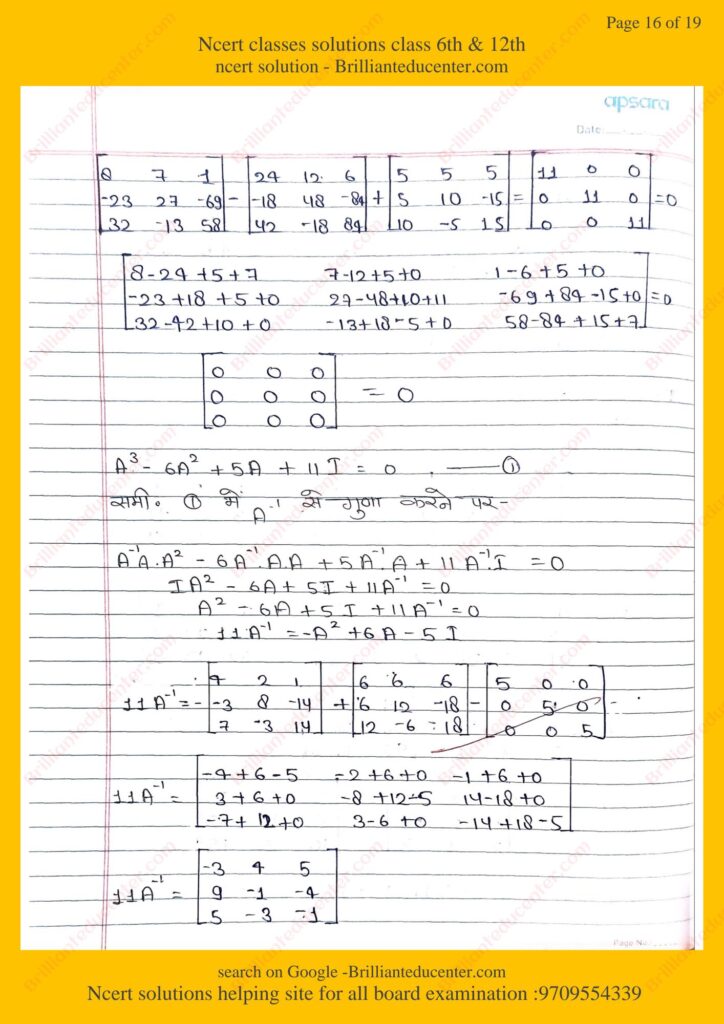 Page 16 of 19
Ncert classes solutions class 6th & 12th
ncert solution - Brillianteducenter.com
apsara
Date:
[8 7 1; -23 27 -69; 32 -13 58] - [24 12 6; -18 48 -84; 42 -18 84] + [5 5 5; 5 10 -15; 10 -5 15] = [11 0 0; 0 11 0; 0 0 11] = 0
8-24+5+7 7-12+5+0 1-6+5+0
-23+18+5+0 27-48+10+11 -69+84-15+0 = 0
32-42+10+0 -13+18-5+0 58-84+15+7
0 0 0
0 0 0 = 0
0 0 0
A³ - 6A² + 5A + 11 I = 0 . —— ①
समी. ① में A⁻¹ से गुणा करने पर-
A⁻¹A.A² - 6A⁻¹.A.A + 5A⁻¹.A + 11A⁻¹.I = 0
IA² - 6A + 5I + 11A⁻¹ = 0
A² - 6A + 5I + 11A⁻¹ = 0
11A⁻¹ = -A² + 6A - 5I
11A⁻¹ = - [4 2 1; -3 8 -14; 7 -3 14] + [6 6 6; 6 12 -18; 12 -6 18] - [5 0 0; 0 5 0; 0 0 5]
-4+6-5 -2+6+0 -1+6+0
11A⁻¹ = 3+6+0 -8+12-5 14-18+0
-7+12+0 3-6+0 -14+18-5
-3 4 5
11A⁻¹ = 9 -1 -4
5 -3 -1
Page No.
search on Google -Brillianteducenter.com
Ncert solutions helping site for all board examination :9709554339